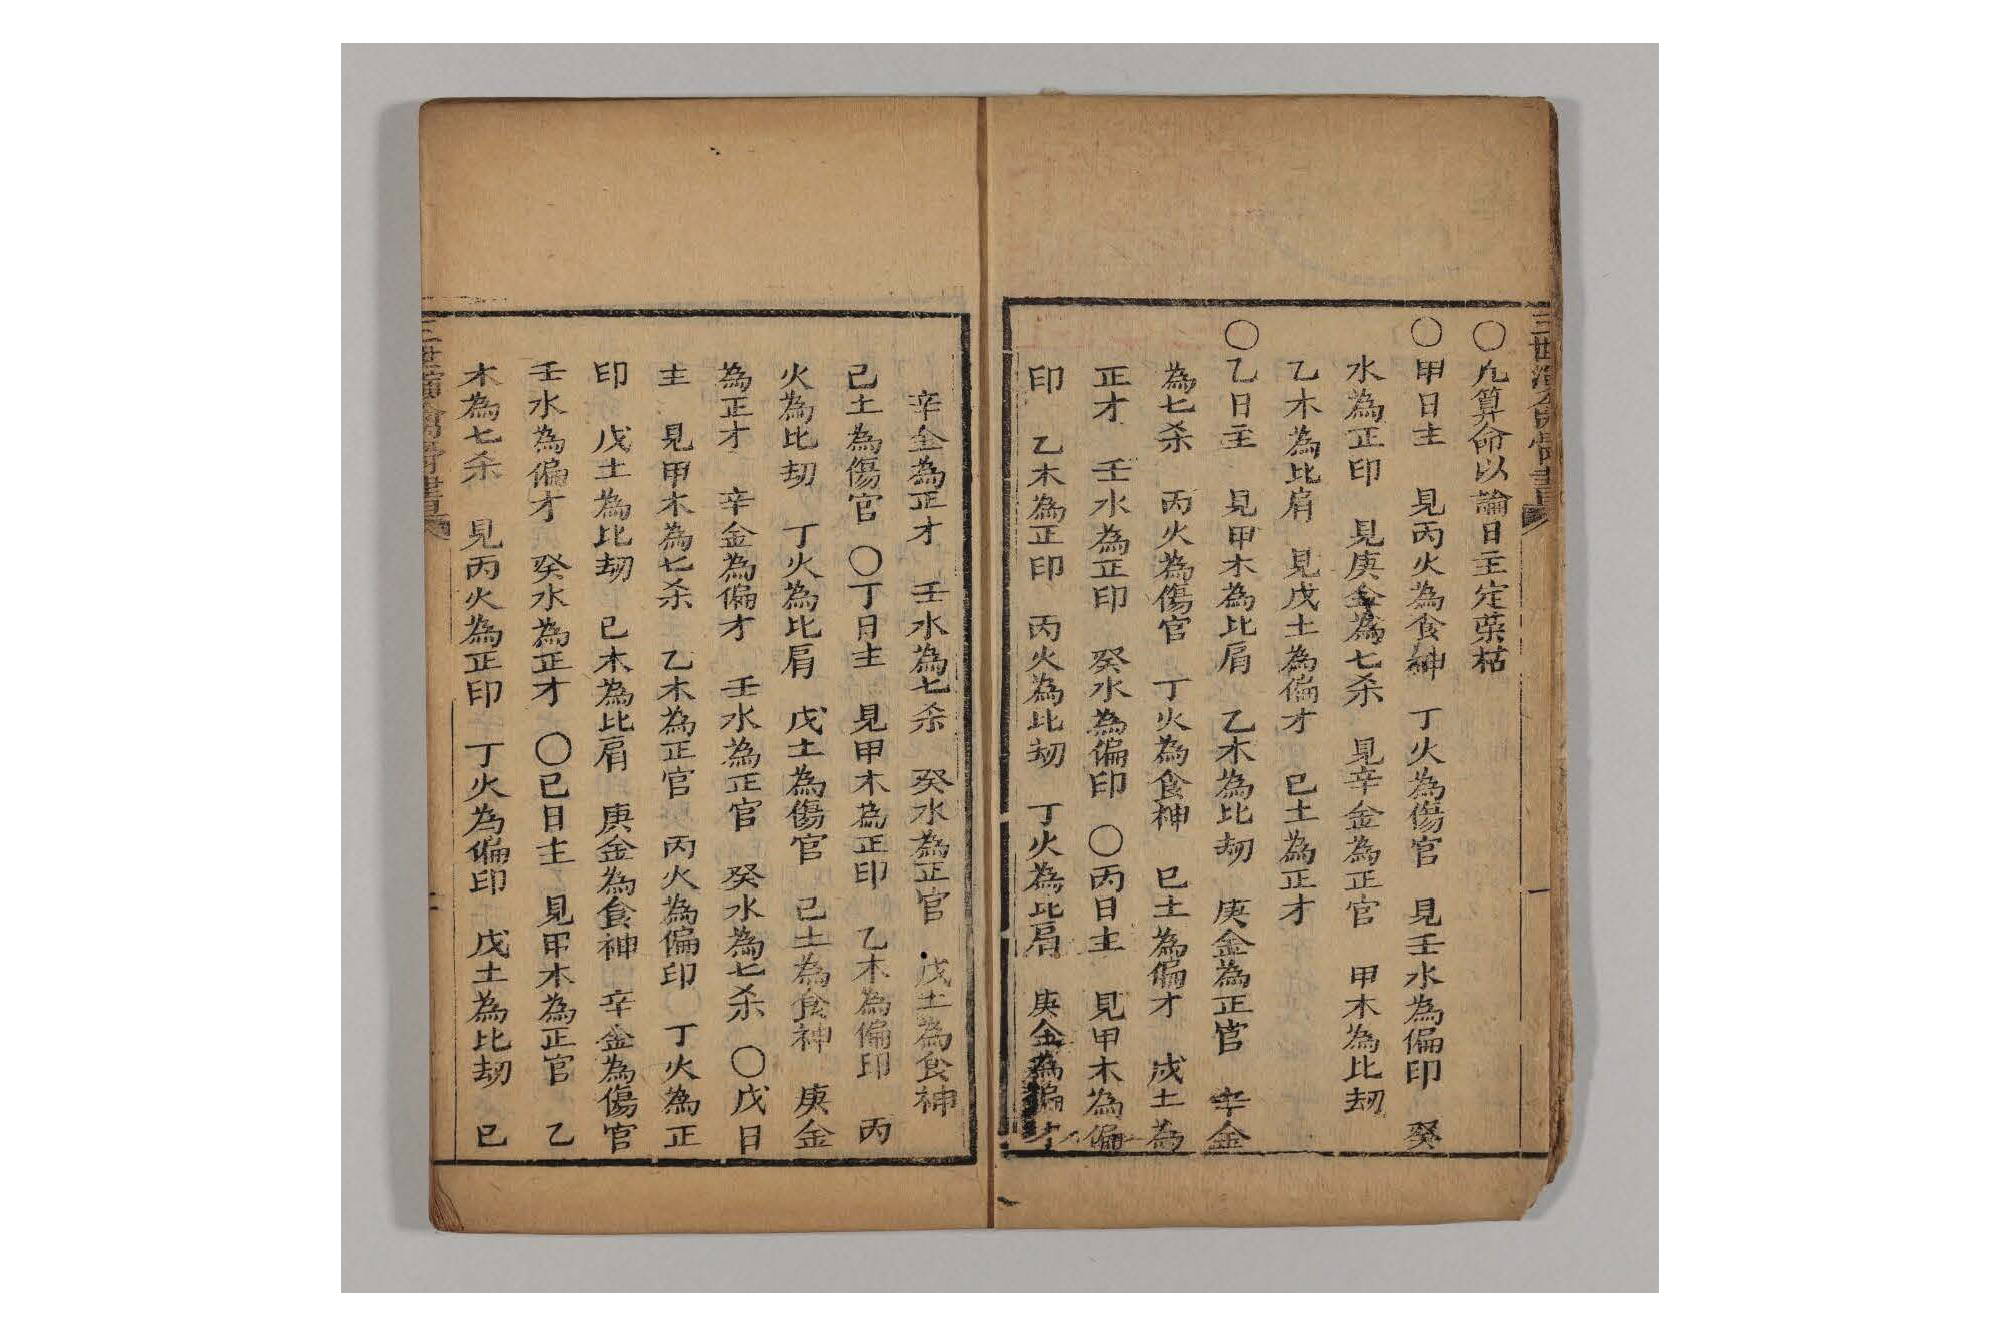 〇凢算命以論日主定荣枯
〇甲日主　見丙火為食神　丁火為傷官　見壬水為偏印　癸
水為正印　見庚金為七杀　見辛金為正官　甲木為比刼
乙木為比肩　見戊土為偏才　已土為正才
〇乙日主　見甲木為比肩　乙木為比刼　庚金為正官　辛金
為七杀　丙火為傷官　丁火為食神　已土為偏才　戊土為
正才　壬水為正印　癸水為偏印　〇丙日主　見甲木為偏
印　乙木為正印　丙火為比刼　丁火為比肩　庚金為偏才
辛金為正才　壬水為七杀　癸水為正官　戊土為食神
己土為傷官　〇丁日主　見甲木為正印　乙木為偏印　丙
火為比刼　丁火為比肩　戊土為傷官　己土為食神　庚金
為正才　辛金為偏才　壬水為正官　癸水為七杀　〇戊日
主　見甲木為七杀　乙木為正官　丙火為偏印　丁火為正
印　戊土為比刼　已木為比肩　庚金為食神　辛金為傷官
壬水為偏才　癸水為正才　〇已日主　見甲木為正官　乙
木為七杀　見丙火為正印　丁火為偏印　戊土為比刼　已